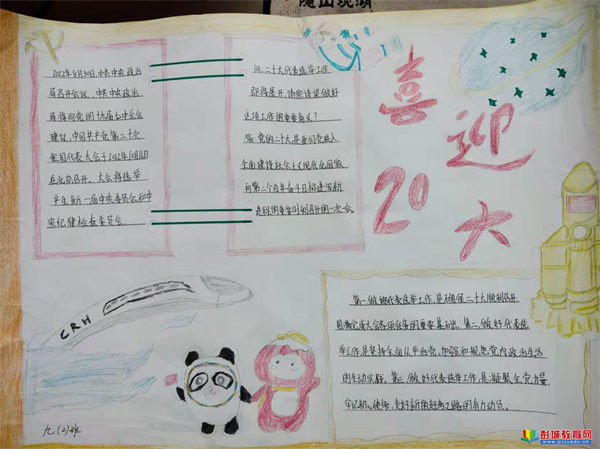 隐山观湖
喜
迎
20
大
2022年8月30日，中共中央政治
局召开会议，中共中央政治
建议，中国共产党第二十次
全国代表大会于2022年10月16日
在北京召开。大会将选举
产生新一届中央委员会和中
央纪律检查委员会。
问：二十大代表选举工作
即将展开，请您谈谈做好
这项工作的重要意义？
答：党的二十大是我们党进入
全面建设社会主义现代化国家
向第二个百年奋斗目标进军新
征程的重要时刻召开的一次
第一，做好代表选举工作，是确保二十大顺利召开
圆满完成大会各项任务的重要基础。第二，做好代表选
举工作，是坚持全面从严治党，加强和规范党内政治生活
的生动实践。第三，做好代表选举工作，是凝聚全党力量
牢记初心使命，走好新的赶考之路的有力动员。
CRH
九(2)班
彭城教育网
www.pcjyedu.cn